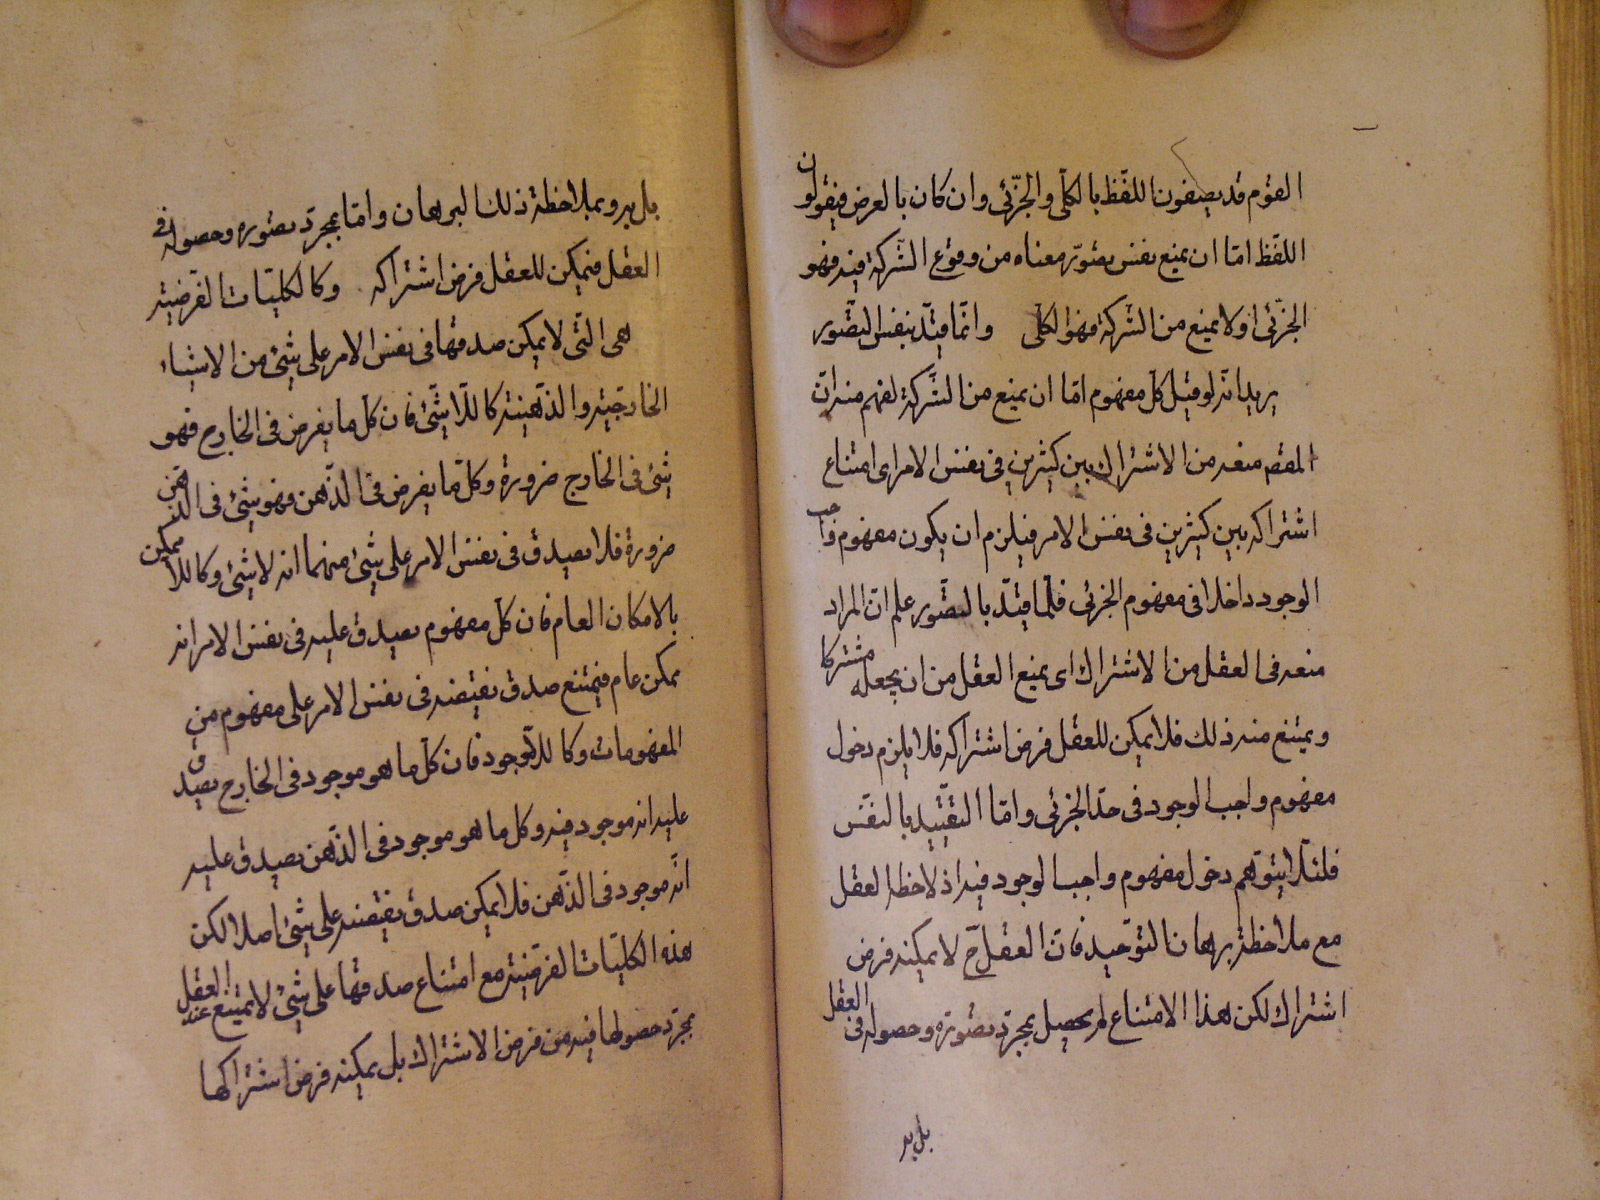 القوم قد يصفون اللفظ بالكلّى والجزئى وان كان بالعرض فيقولون
اللفظ امّا ان يمنع نفس تصوّر معناه من وقوع الشركة فيه فهو
الجزئى او لا يمنع من الشركة فهو الكلى وانّما قيّد بنفس التصّور
يريد انّه لو قيل كل مفهوم امّا ان يمنع من الشركة لفهم منه انّ
المقصم منعه من الاشتراك بين كثيرين فى نفس الامر اى امتناع
اشتراكه بين كثيرين فى نفس الامر فيلزم ان يكون مفهوم واجب
الوجود داخلا فى مفهوم الجزئى فلّما قيّد بالتصّور علم انّ المراد
منعه فى العقل من الاشتراك اى يمنع العقل من ان يجعله مشتركا
ويمتنع منه ذلك فلا يمكن للعقل فرض اشتراكه فلا يلزم دخول
مفهوم واجب الوجود فى حدّ الجزئى وامّا التقييد بالنفس
فلئلّا يتوّهم دخول مفهوم واجب الوجود فيه اذ لاحظ العقل
مع ملاحظة برهان التوحيد فانّ العقل ح لا يمكنه فرض
اشتراك لكن هذا الامتناع لم يحصل بمجرّد تصّوره وحصوله فى العقل
بل به
بل به وبملاحظة ذلك البرهان وامّا بمجرّد تصّوره وحصوله فى
العقل فيمكن للعقل فرض اشتراكه وكالكليّات الفرضيّة
هى الّتى لا يمكن صدقها فى نفس الامر على شئ من الاشياء
الخارجيّة والذّهنية كاللّا شئ فان كلّ ما يفرض فى الخارج فهو
شئ فى الخارج ضرورة وكلّ ما يفرض فى الذّهن فهو شئ فى الذّهن
ضرورة فلا يصدق فى نفس الامر على شئ منهما انه لا شئ وكاللّا ممكن
بالامكان العام فان كلّ مفهوم يصدق عليه فى نفس الامر انه
ممكن عام فيمتنع صدق نقيضه فى نفس الامر على مفهوم من
المفهومات وكاللّا وجود فان كلّ ما هو موجود فى الخارج يصدق
عليه انه موجود فيه وكل ما هو موجود فى الذّهن يصدق عليه
انّه موجود فى الذّهن فلا يمكن صدق نقيضه على شئ اصلا لكن
هذه الكليّات الفرضيّة مع امتناع صدقها على شئ لا يمتنع عند العقل
بمجرّد حصولها فيه من فرض الاشتراك بل يمكنه فرض اشتراكها